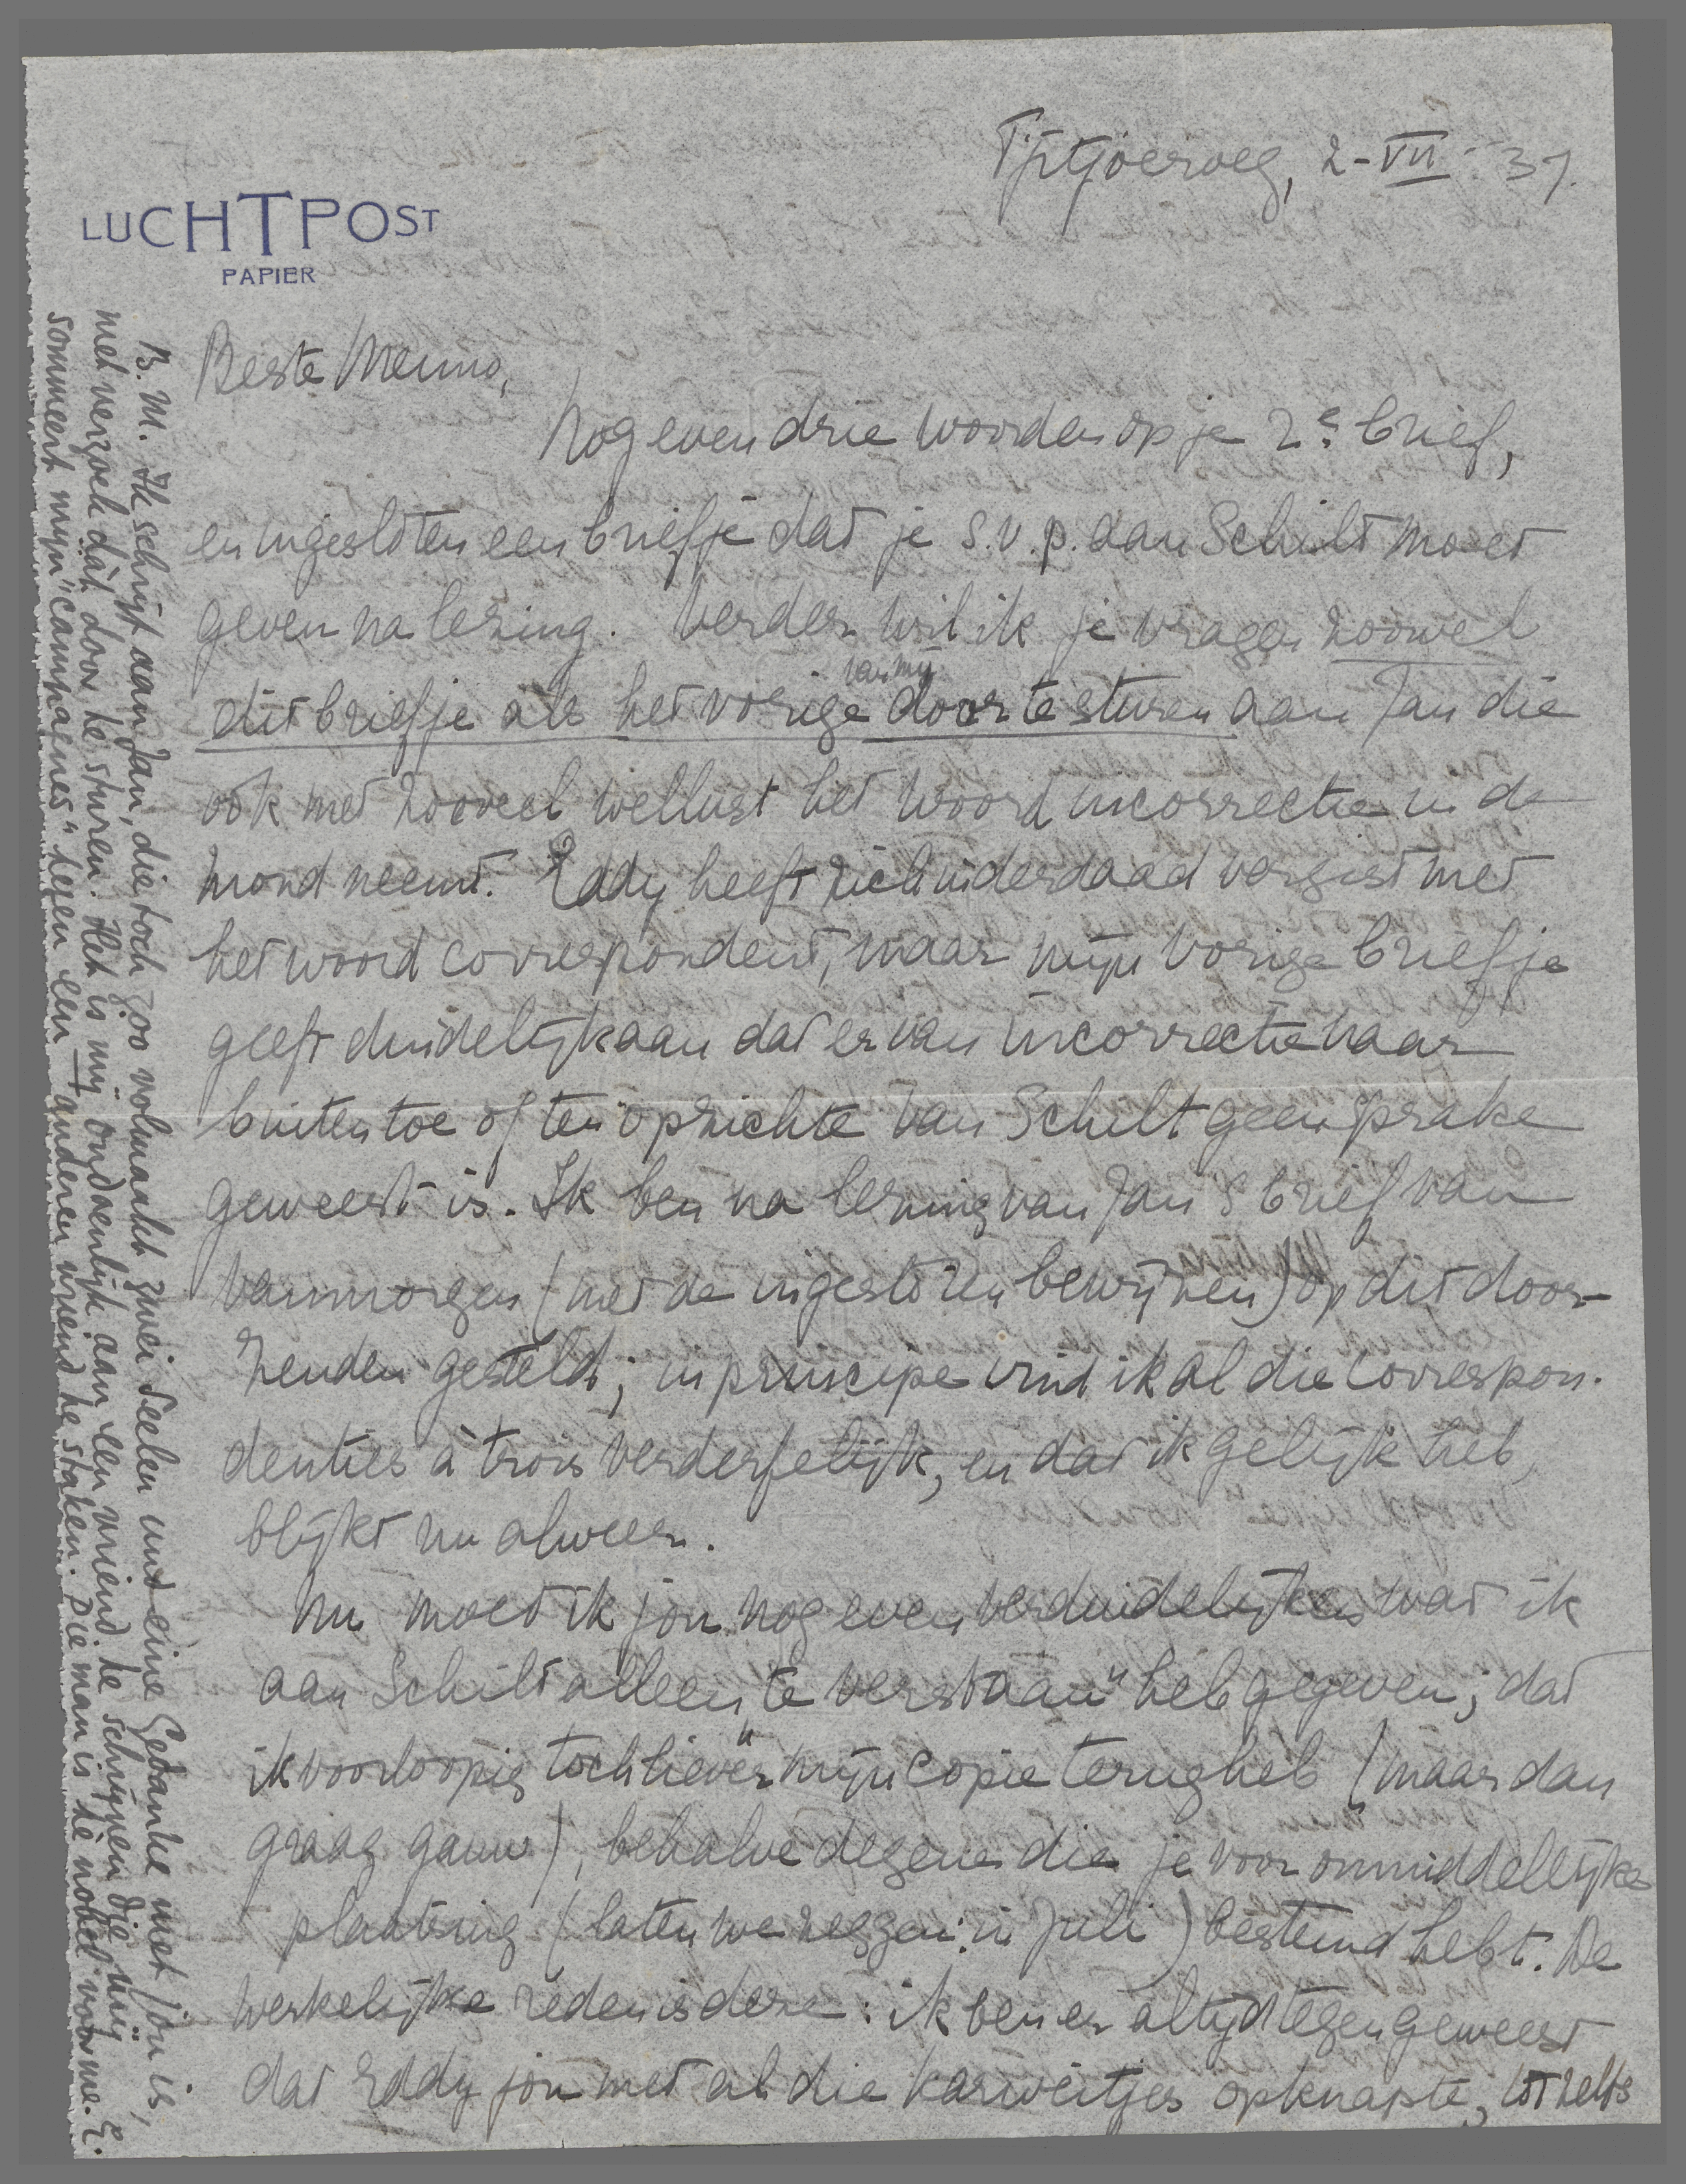 Tjitjoeroeg, 2-VII-'37.
LUCHTPOST
PAPIER
Beste Menno,
Nog even drie woorden op je 2e brief,
en ingesloten een briefje dat je s.v.p. aan Schilt moet
geven na lezing. Verder wil ik je vragen zoowel
van mij
dit briefje als het vorige door te sturen aan Jan die
ook met zooveel wellust het woord incorrectie in de
mond neemt. Eddy heeft zich inderdaad vergist met
het woord correspondent, maar mijn vorige briefje
geeft duidelijk aan dat er van incorrectie naar
buiten toe of ten opzichte van Schilt geen sprake
geweest is. Ik ben na lezing van Jan's brief van
vanmorgen (met de ingesloten bewijzen) op dit door-
zenden gesteld; in principe vind ik al die correspon-
denties à trois verderfelijk, en dat ik gelijk heb,
blijkt nu alweer.
Nu moet ik jou nog even verduidelijken wat ik
aan Schilt alleen „te verstaan" heb gegeven; dat
ik voorloopig „toch liever" mijn copie terug heb (maar dan
graag gauw), behalve degene die je voor onmiddellijke
plaatsing (laten we zeggen: in Juli) bestemd hebt. De
werkelijke reden is deze: ik ben er altijd tegen geweest
dat Eddy jou met al die karweitjes opknapte, tot zelfs
B.M. Ik schrijf aan Jan, die toch zoo volmaakt zwei Seelen und eine Gedanke met jou is,
met verzoek dàt door te sturen. Het is mij ondoenlijk aan een vriend te schrijven die mij
sommeert mijn „campagnes" tegen een anderen vriend te staken. Die man is te nobel voor me. E.